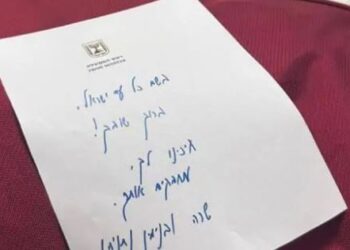 בשם כל עם ישראל,
ברוך שובך!
חיכינו לך.
מחבקים אותך.
שרה ובנימין נתניהו